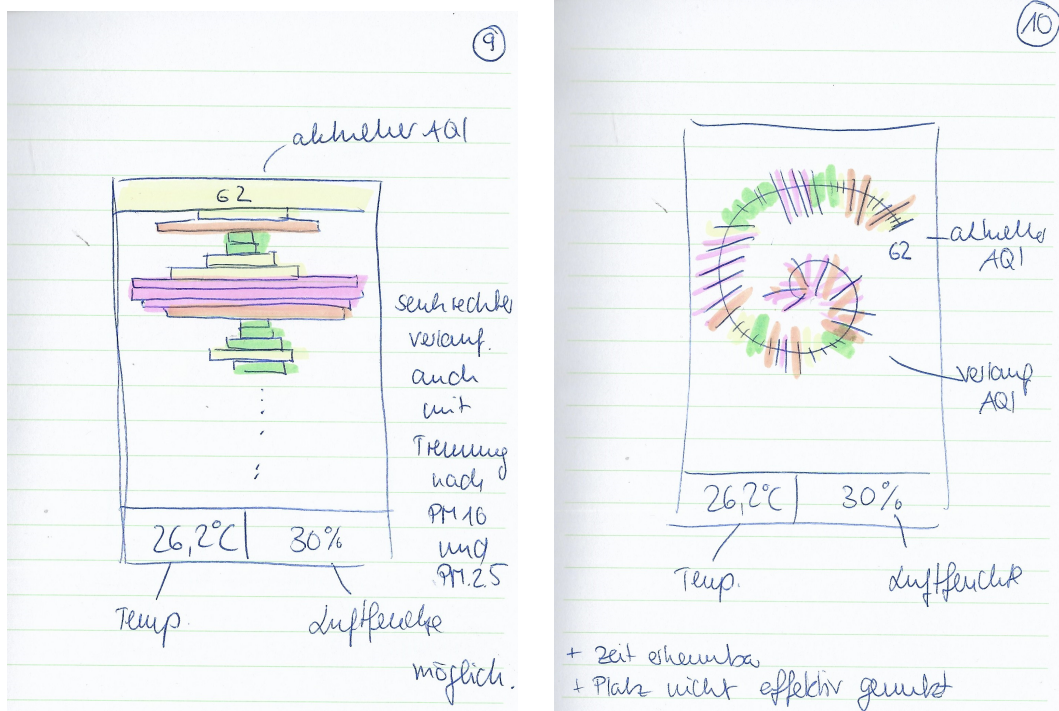 9
aktueller AQI
62
senkrechter
verlauf.
auch
mit
Trennung
nach
PM10
und
PM2.5
möglich.
26,2°C
30%
Temp.
Luftfeuchte
10
62
aktueller
AQI
verlauf
AQI
26,2°C
30%
Temp.
Luftfeuchte
+ Zeit erkennbar
+ Platz nicht effektiv genutzt